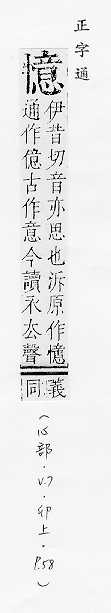 正字通
憶
伊昔切音亦思也泝原作憶
通作億古作意今讀衣厺聲
義
同
(心部·V.7·卯上·P.58)